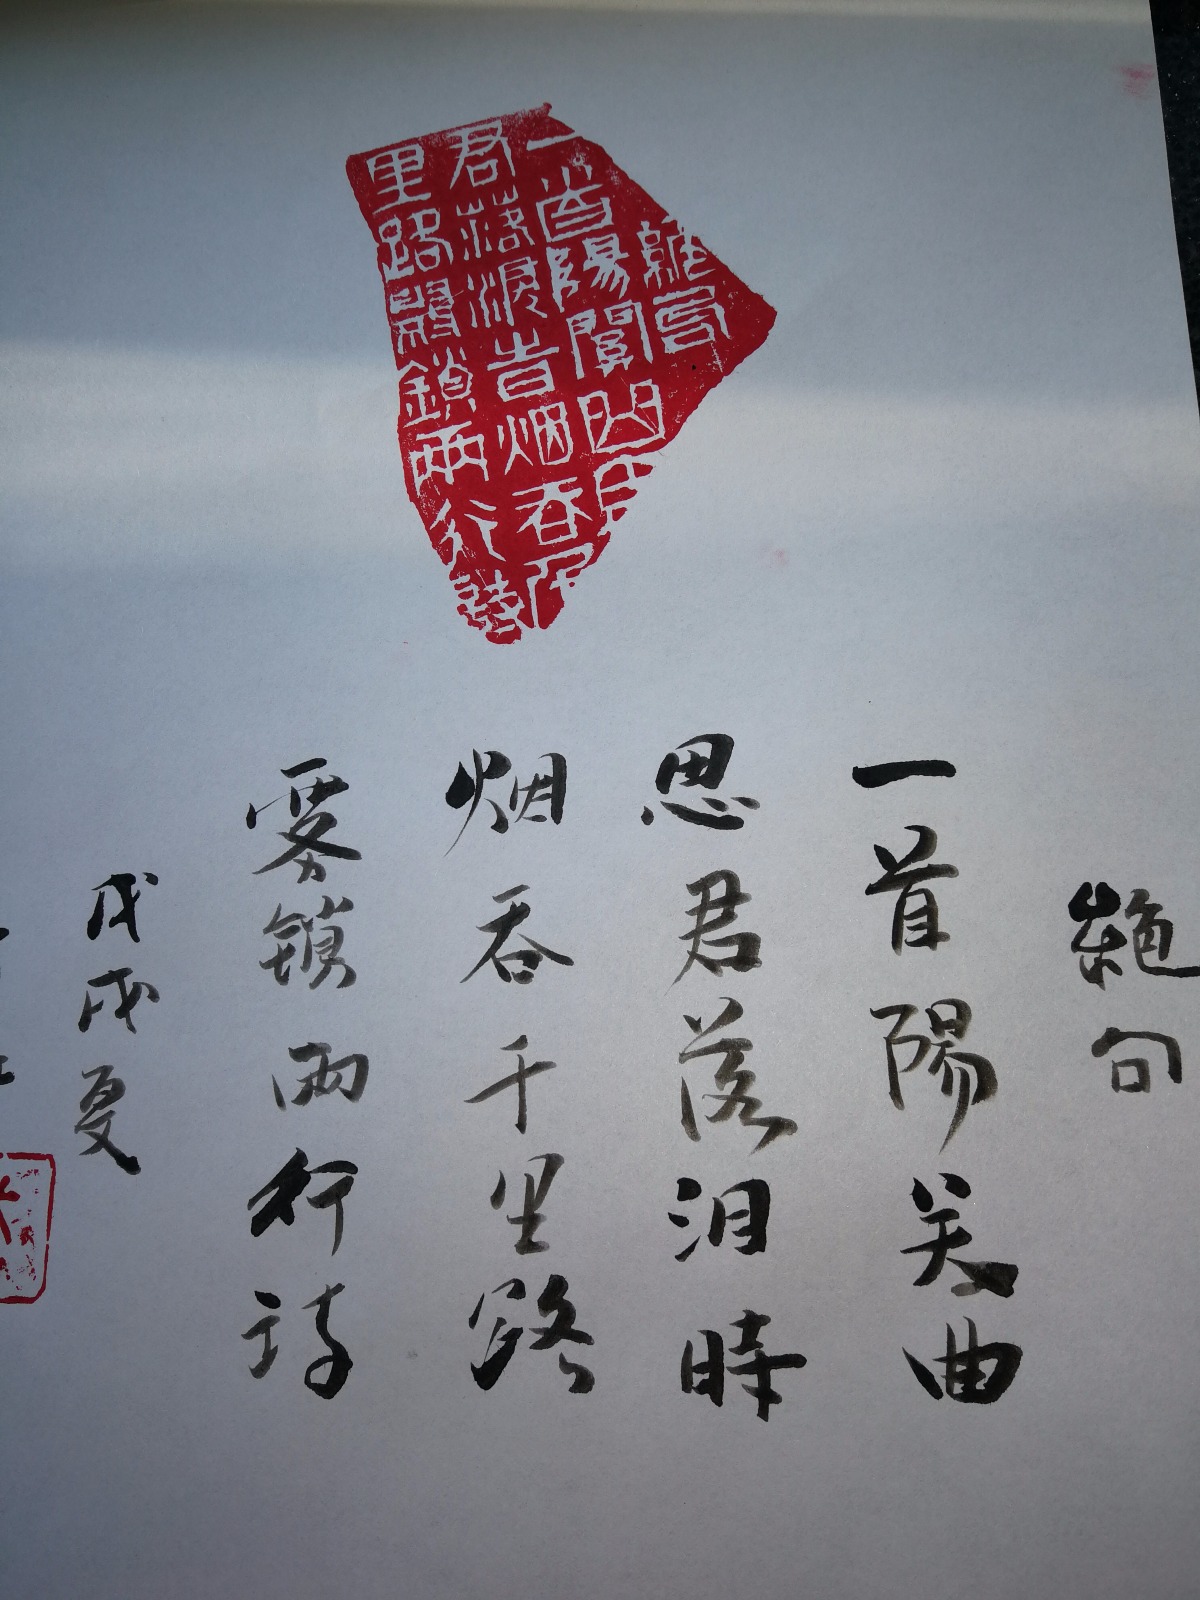 絶句
一首陽關曲思
君落淚旹烟吞千
里路霧鎖兩行詩
絶句
一首陽关曲
思君落泪時
烟吞千里路
雾锁兩行诗
戊戌夏